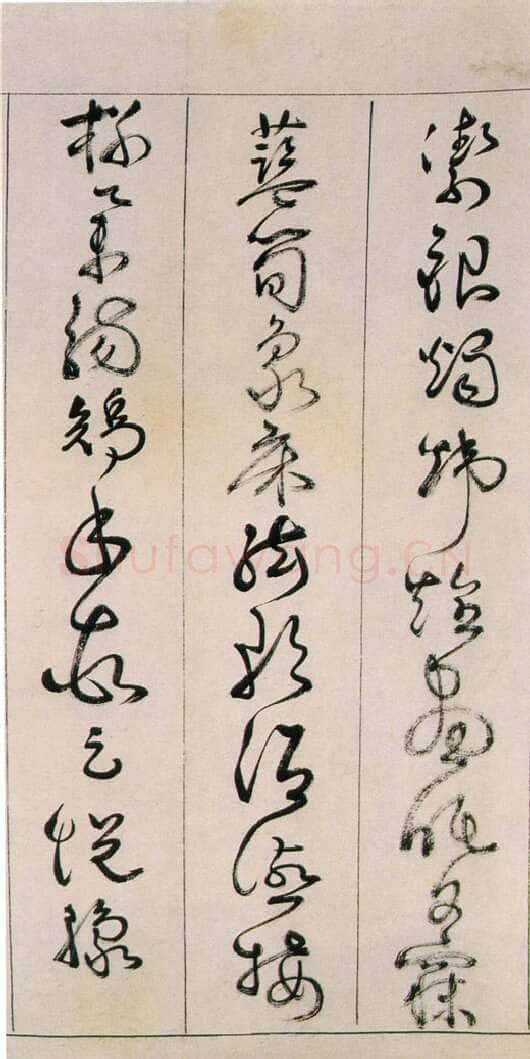 潔銀燭煒煌晝眠夕寐
藍筍象床絃歌酒讌接
杯舉觴矯手頓足悅豫
Shufawang.CN